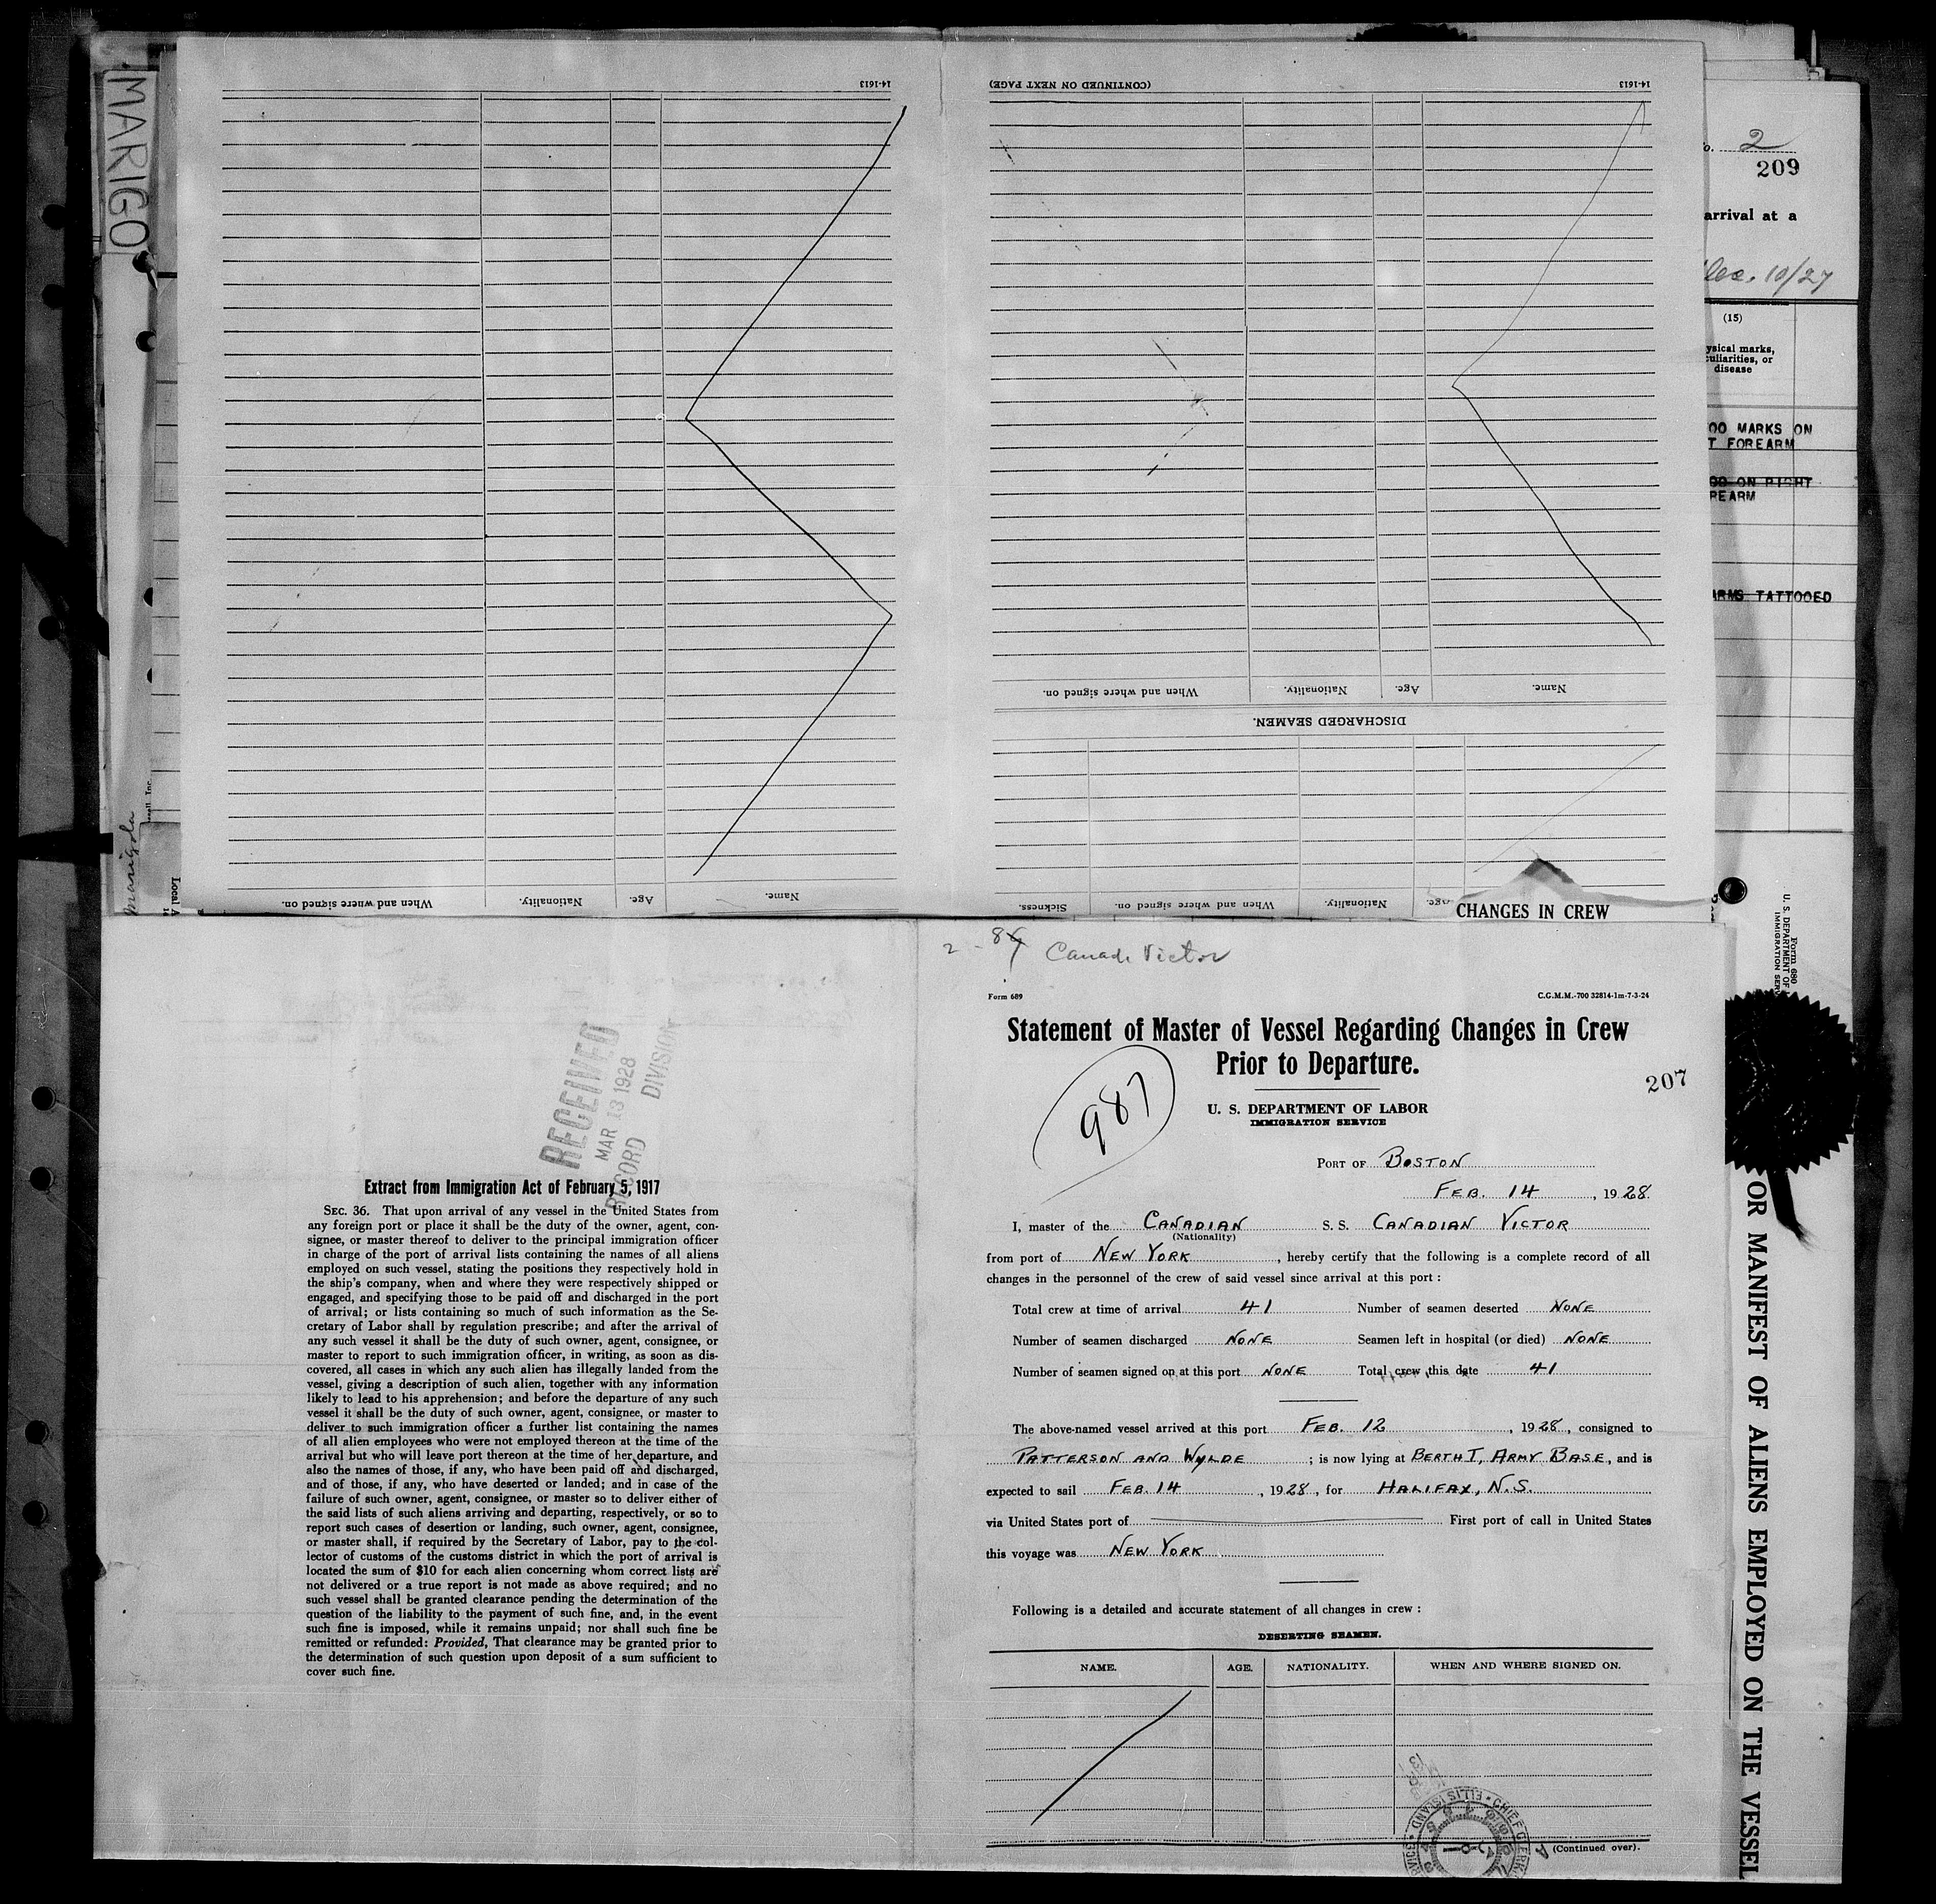 MARIGO
14-1613
(CONTINUED ON NEXT PAGE)
14-1613
2
209
arrival at a
Dec. 10/27
(15)
ysical marks,
culiarities, or
disease
OO MARKS ON
T FOREARM
OO ON RIGHT
REARM
ARMS TATTOOED
When and where signed on.
Nationality.
Age.
Name.
DISCHARGED SEAMEN.
When and where signed on.
Nationality.
Age.
Name.
Sickness.
When and where signed on.
Nationality.
Age.
CHANGES IN CREW
Marigola
Local A
2 - 89 Canad. Victor
Form 689
C.G.M.M.-700 32814-1m-7-3-24
Statement of Master of Vessel Regarding Changes in Crew
Prior to Departure.
987
207
U. S. DEPARTMENT OF LABOR
IMMIGRATION SERVICE
PORT OF BOSTON
FEB. 14, 1928.
I, master of the CANADIAN S. S. CANADIAN VICTOR
(Nationality)
from port of NEW YORK, hereby certify that the following is a complete record of all
changes in the personnel of the crew of said vessel since arrival at this port:
Total crew at time of arrival 41 Number of seamen deserted NONE
Number of seamen discharged NONE Seamen left in hospital (or died) NONE
Number of seamen signed on at this port NONE Total crew this date 41
The above-named vessel arrived at this port FEB. 12, 1928, consigned to
PATTERSON AND WYLDE; is now lying at BERTH I, ARMY BASE, and is
expected to sail FEB. 14, 1928, for HALIFAX, N.S.
via United States port of First port of call in United States
this voyage was NEW YORK
Following is a detailed and accurate statement of all changes in crew:
DESERTING SEAMEN.
NAME. AGE. NATIONALITY. WHEN AND WHERE SIGNED ON.
(Continued over).
CHIEF CLERK
ELLIS ISLAND
RECEIVED
MAR 13 1928
RECORD DIVISION
Extract from Immigration Act of February 5, 1917
SEC. 36. That upon arrival of any vessel in the United States from
any foreign port or place it shall be the duty of the owner, agent, con-
signee, or master thereof to deliver to the principal immigration officer
in charge of the port of arrival lists containing the names of all aliens
employed on such vessel, stating the positions they respectively hold in
the ship's company, when and where they were respectively shipped or
engaged, and specifying those to be paid off and discharged in the port
of arrival; or lists containing so much of such information as the Se-
cretary of Labor shall by regulation prescribe; and after the arrival of
any such vessel it shall be the duty of such owner, agent, consignee, or
master to report to such immigration officer, in writing, as soon as dis-
covered, all cases in which any such alien has illegally landed from the
vessel, giving a description of such alien, together with any information
likely to lead to his apprehension; and before the departure of any such
vessel it shall be the duty of such owner, agent, consignee, or master to
deliver to such immigration officer a further list containing the names
of all alien employees who were not employed thereon at the time of the
arrival but who will leave port thereon at the time of her departure, and
also the names of those, if any, who have been paid off and discharged,
and of those, if any, who have deserted or landed; and in case of the
failure of such owner, agent, consignee, or master so to deliver either of
the said lists of such aliens arriving and departing, respectively, or so to
report such cases of desertion or landing, such owner, agent, consignee,
or master shall, if required by the Secretary of Labor, pay to the col-
lector of customs of the customs district in which the port of arrival is
located the sum of $10 for each alien concerning whom correct lists are
not delivered or a true report is not made as above required; and no
such vessel shall be granted clearance pending the determination of the
question of the liability to the payment of such fine, and, in the event
such fine is imposed, while it remains unpaid; nor shall such fine be
remitted or refunded: Provided, That clearance may be granted prior to
the determination of such question upon deposit of a sum sufficient to
cover such fine.
Form 680
U. S. DEPARTMENT OF
IMMIGRATION SERV
OR MANIFEST OF ALIENS EMPLOYED ON THE VESSEL